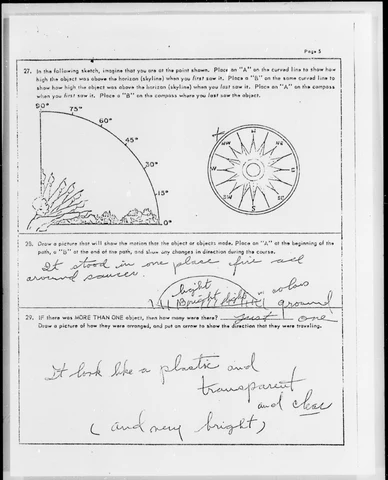 Page 5
27. In the following sketch, imagine that you are at the point shown. Place an "A" on the curved line to show how
high the object was above the horizon (skyline) when you first saw it. Place a "B" on the same curved line to
show how high the object was above the horizon (skyline) when you last saw it. Place an "A" on the compass
when you first saw it. Place a "B" on the compass where you last saw the object.
90°
75°
60°
45°
30°
15°
0°
N
NW
NE
W
E
SW
SE
S
28. Draw a picture that will show the motion that the object or objects made. Place an "A" at the beginning of the
path, a "B" at the end of the path, and show any changes in direction during the course.
It stood in one place
around saucer.
light
Bright light
colors
ground
29. IF there was MORE THAN ONE object, then how many were there? just one
Draw a picture of how they were arranged, and put an arrow to show the direction that they were traveling.
It look like a plastic and
transparent
and clear
(and very bright)